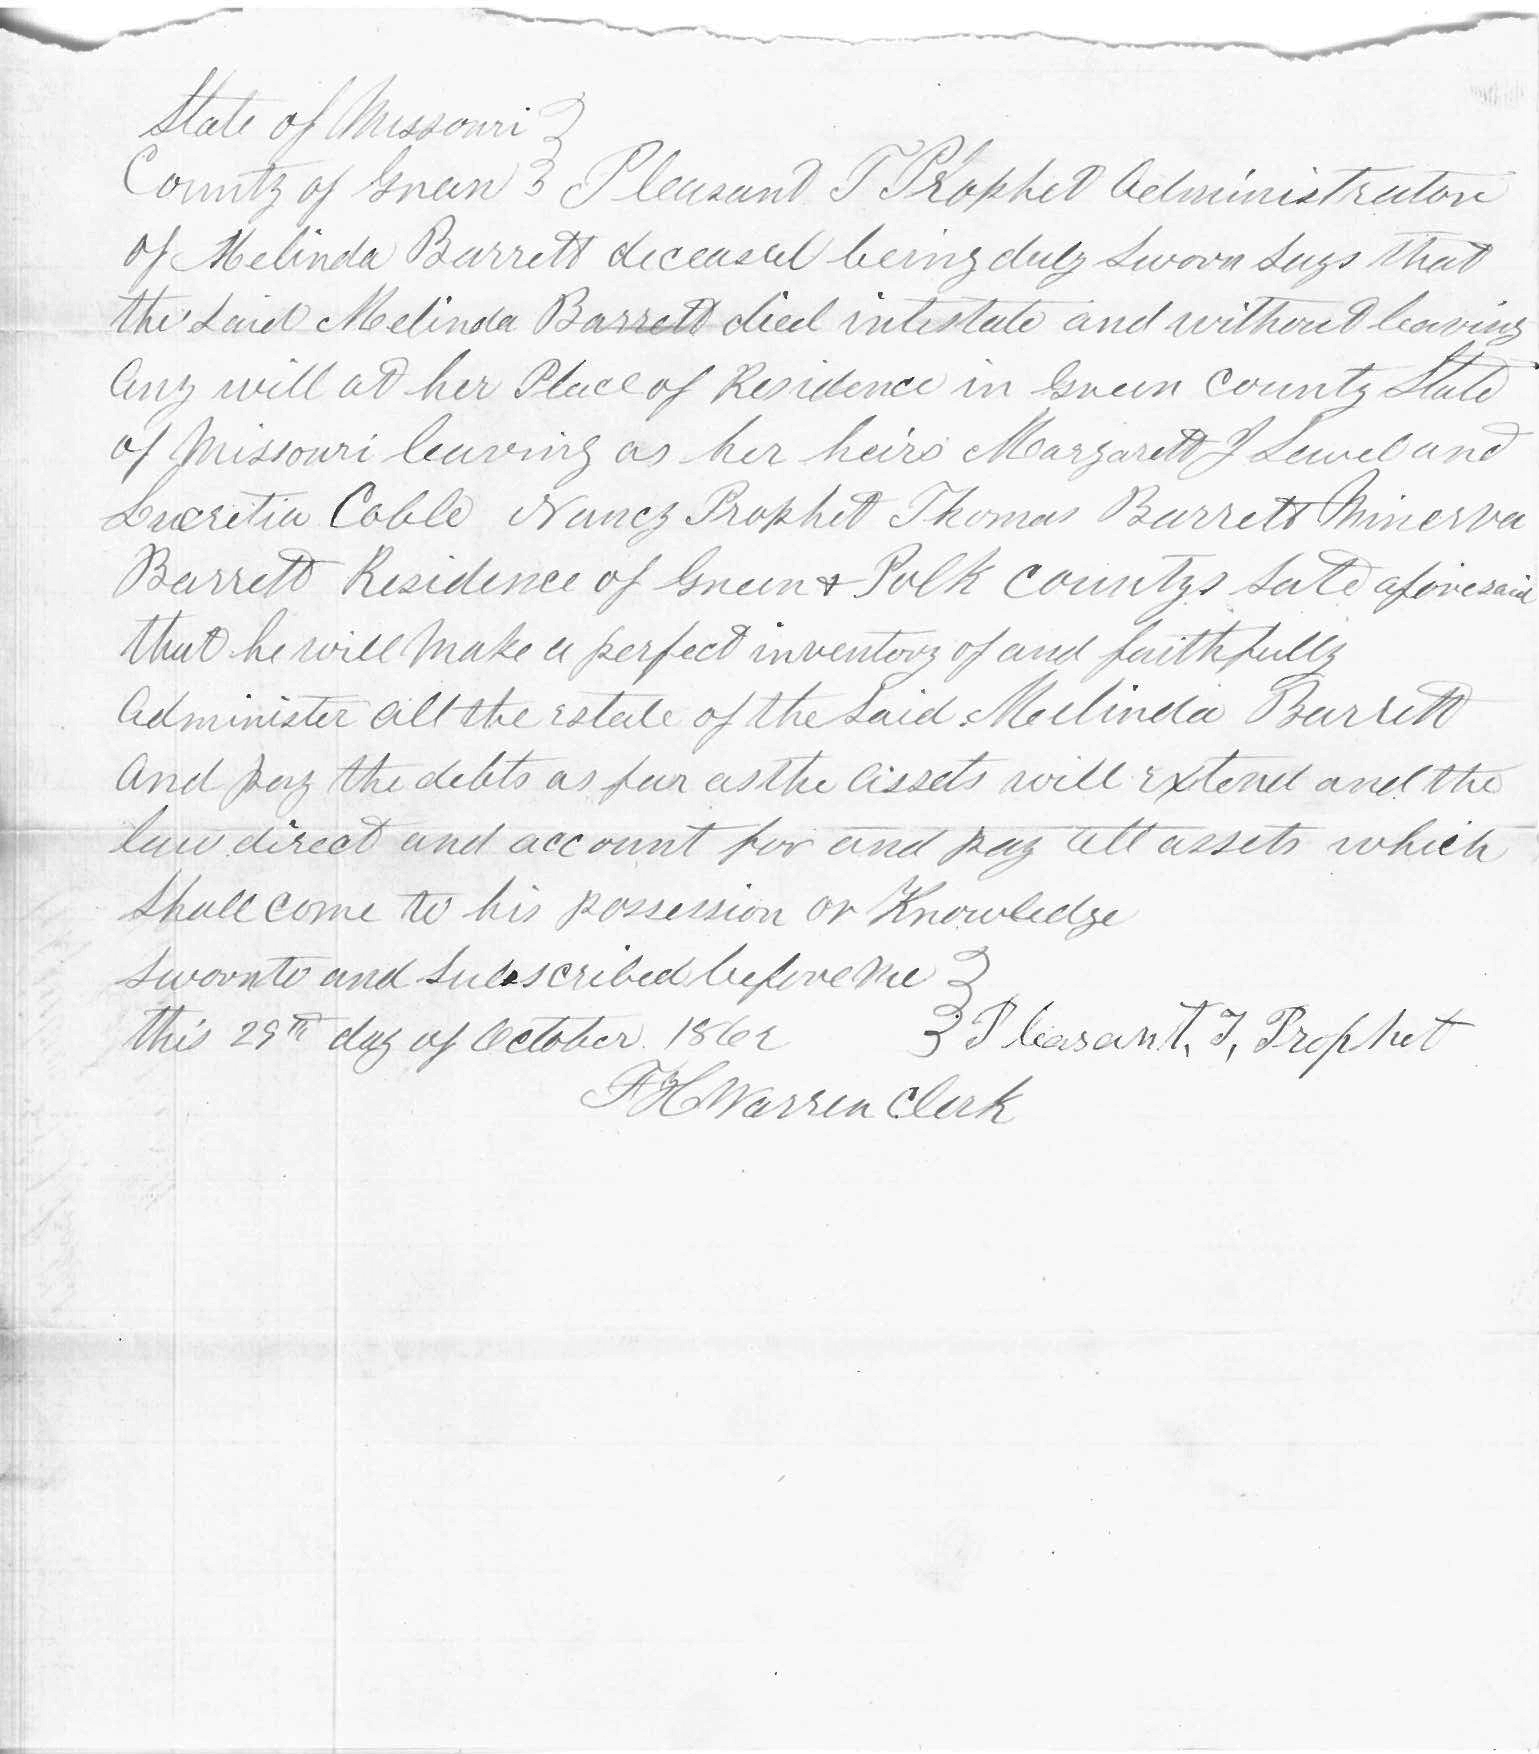 State of Missouri }
County of Green } Pleasant T Prophet Administrator
of Melinda Barrett deceased being duly sworn says that
the said Melinda Barrett died intestate and without leaving
any will at her Place of Residence in Green County State
of Missouri leaving as her heirs Margarett J Lewel and
Lucretia Coble Nancy Prophet Thomas Barrett Minerva
Barrett Residence of Green & Polk countys sate aforesaid
that he will make a perfect inventory of and faithfully
Administer all the estate of the said Melinda Barrett
and pay the debts as far as the assets will extend and the
law direct and account for and pay all assets which
shall come to his possession or Knowledge
sworn to and subscribed before me }
this 29th day of October 1862 } Pleasant, T, Prophet
F H Warren Clerk